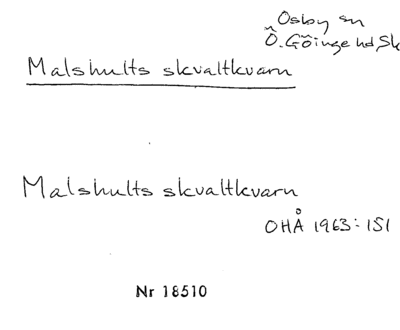 Osby sn
Ö. Göinge hd Sk
Malshults skvaltkvarn
Malshults skvaltkvarn
OHÅ 1963:151
Nr 18510